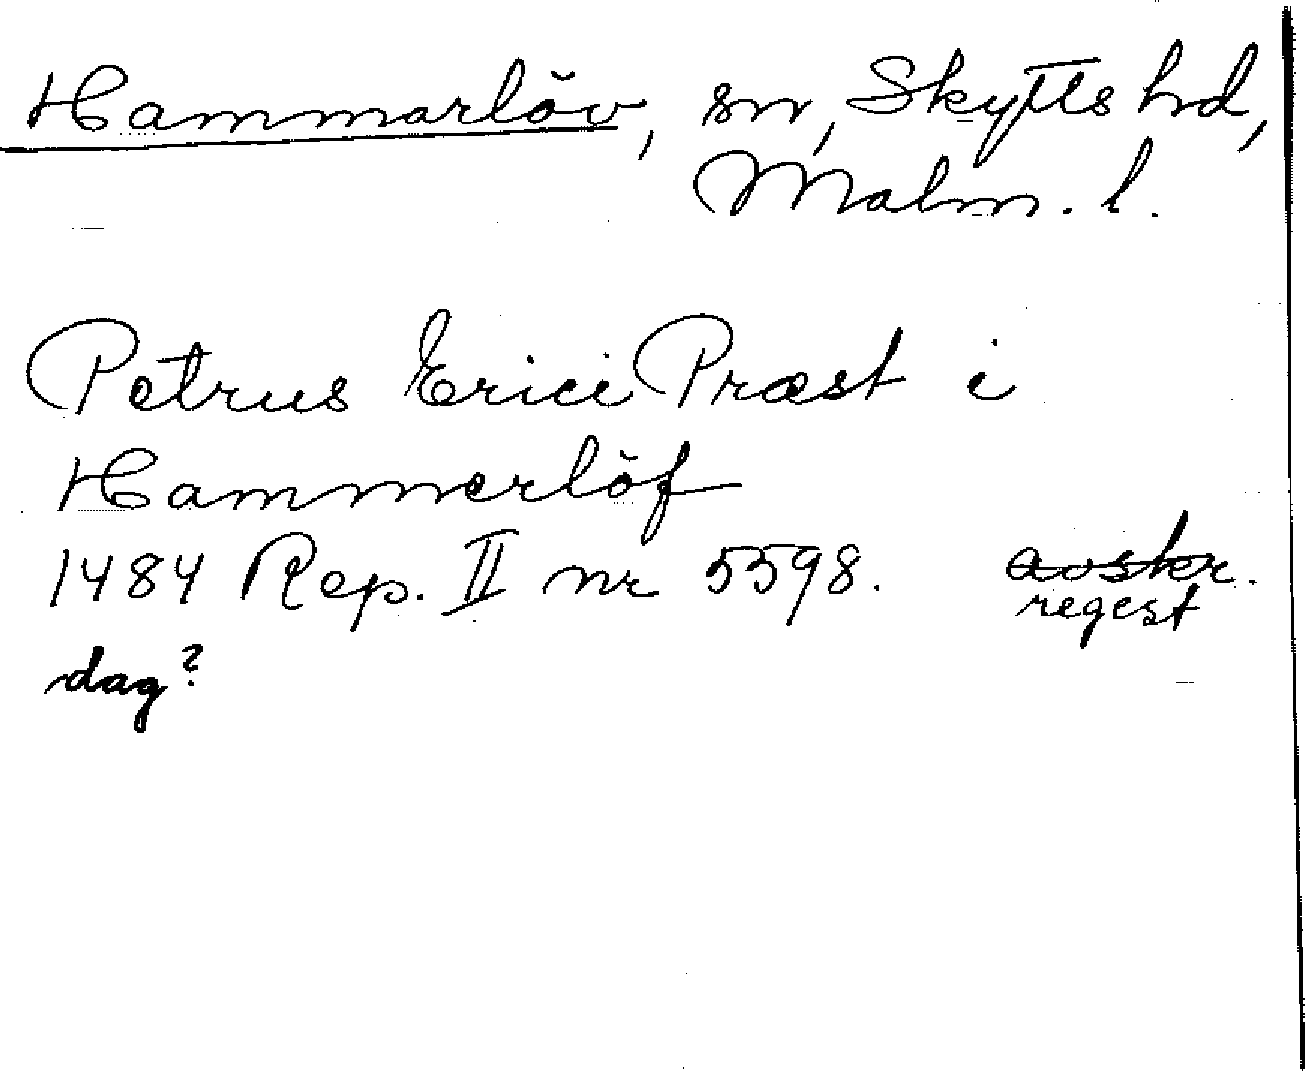 Hammarlöv, sn, Skytts hd,
Malm. l.
Petrus Erici Præst i
Hammerlöf
1484 Rep. II nr 5598. avskr.
regest
dag?